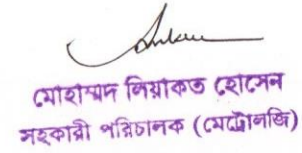 মোহাম্মদ লিয়াকত হোসেন
সহকারী পরিচালক (মেট্রোলজি)